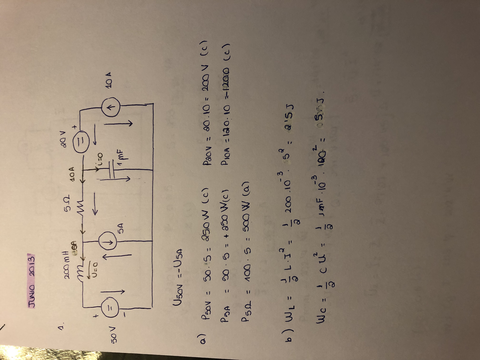 JUNIO 2013
1.
200 mH
5 Ω
10A
20 V
+
10A
U=0
i=0
5A
1 mF
50 V
+
-
U50V = -U5A
a)
P50V = 50 · 5 = 250 W (c)
P20V = 20 · 10 = 200 V (c)
P5A = 50 · 5 = +250 W (c)
P10A = 120 · 10 = -1200 (c)
P5Ω = 100 · 5 = 500 W (a)
b) WL = 1/2 L · I² = 1/2 200 · 10⁻³ · 5² = 2'5 J
WC = 1/2 C U² = 1/2 1mF · 10⁻³ · 100² = 5 J.